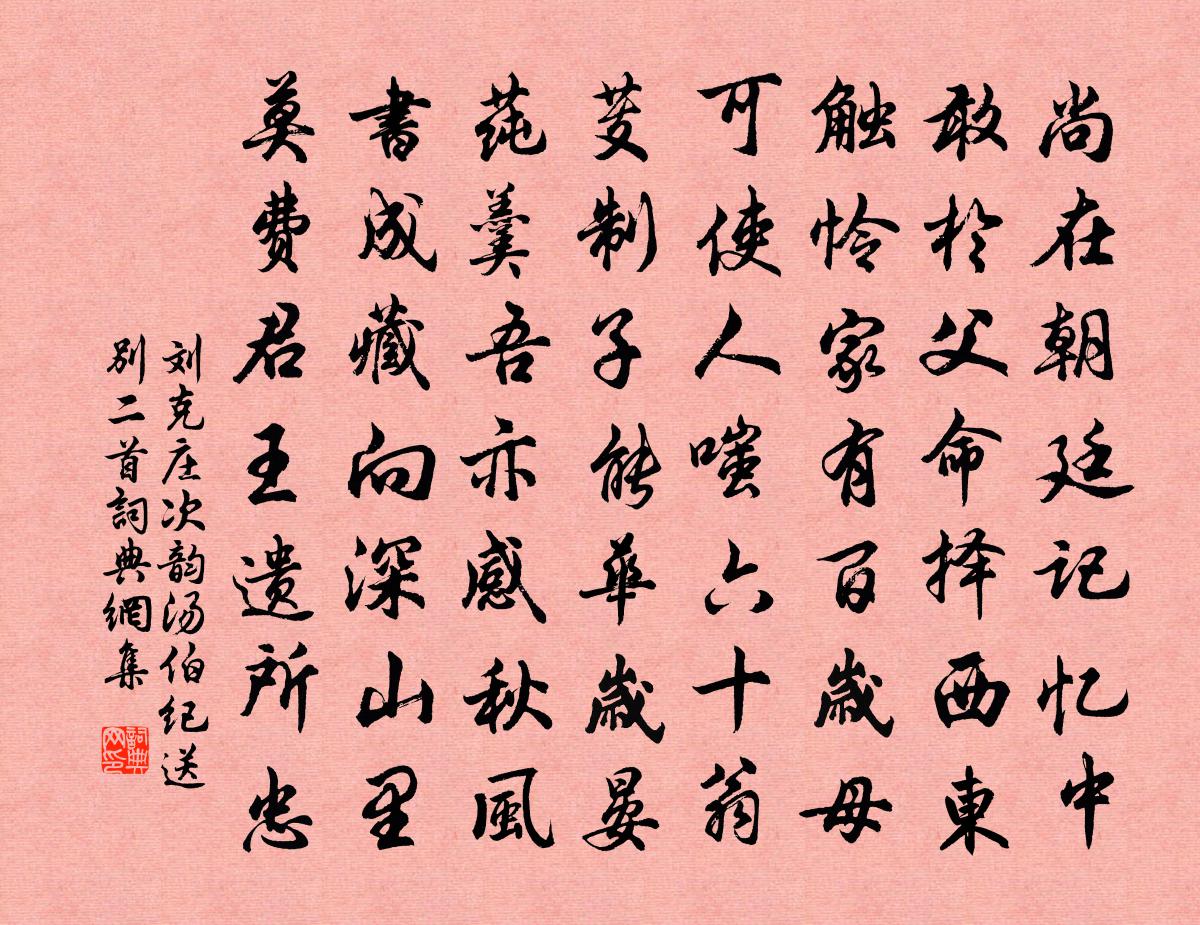 尚在朝廷记忆中
敢於父命择西東
触怜家有百歲母
可使人嗤六十翁
芰制子能華歲晏
莼羹吾亦感秋風
書成藏向深山里
莫費君王遗所忠
刘克庄次韵汤伯纪送
别二首詞典網集
詞典网印